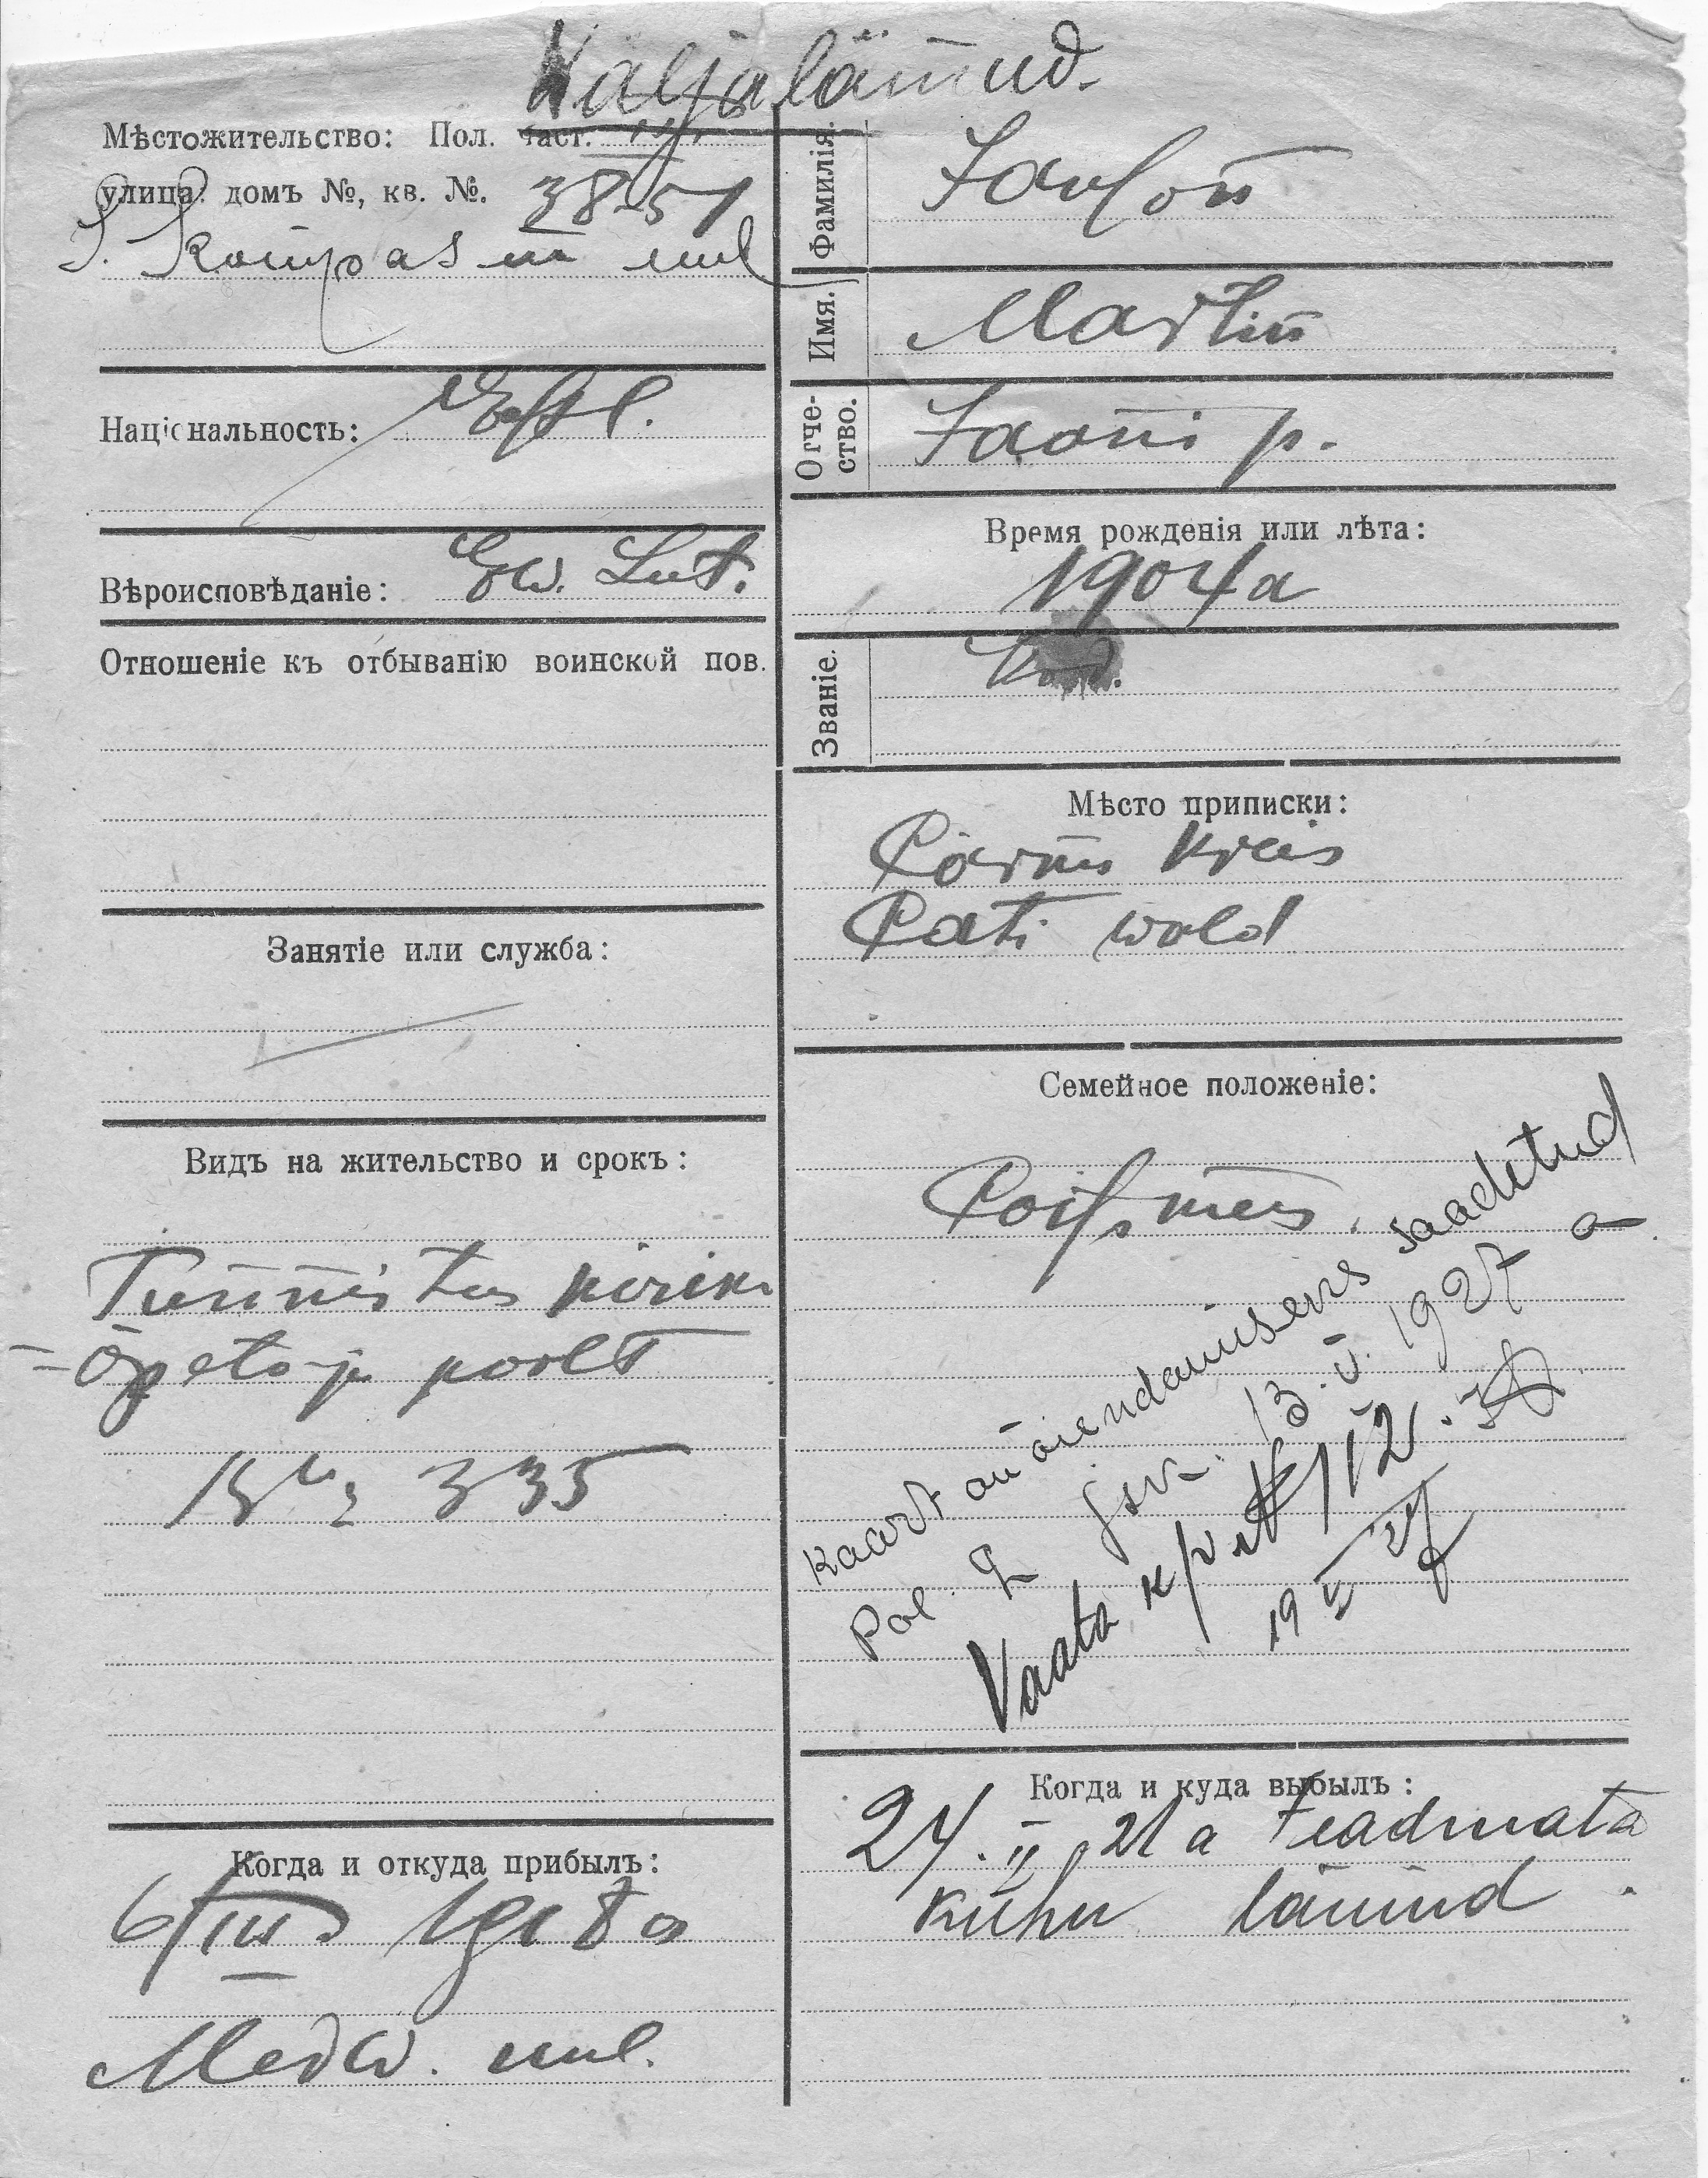 Väljaläinud.
Мѣстожительство: Пол. част.
улица домъ №, кв. №. 38-51
S. Kompasna uul
Національность: Estl.
Вѣроисповѣданіе: Ew. Lut.
Отношеніе къ отбыванію воинской пов.
Занятіе или служба:
Видъ на жительство и срокъ:
Tunnistus kiriku
-õpetaja poolt
335
Когда и откуда прибылъ:
6/III 1918 a
Medw. uul.
Фамилія.
Имя. Martin
Отчество. Jaani p.
Время рожденія или лѣта:
1904 a
Званіе.
Мѣсто приписки:
Pärnu Kreis
Pati wald
Семейное положеніе:
Poissmees.
Kaart on õiendamiseks saadetud
Pol. 2 jsk. 13.V.1927 a
Vaata
Когда и куда выбылъ:
24.II.21 a teadmata
kuhu läinud.